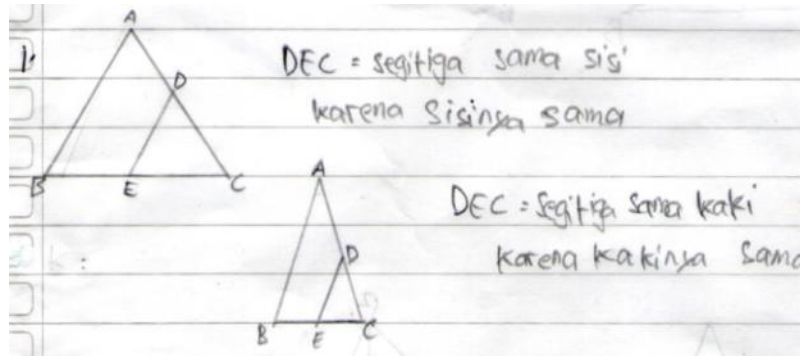 A
1.
DEC = segitiga sama sisi
D
karena sisinya sama
B E C
A
DEC = segitiga sama kaki
D
karena kakinya sama
B E C